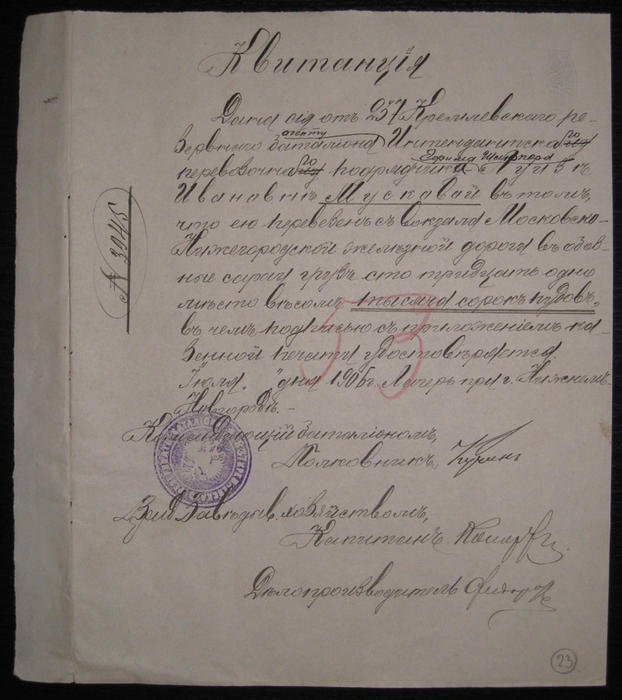 Квитанцiя
Дана сiя отъ 257 Кремлевскаго ре-
зервнаго баталiона Интендантска
агенту го
перевозочна подрядчика
го
Ивановнѣ Мускавай въ томъ,
что ею перевезенъ съ вокзала Московско-
Нижегородской желѣзной дороги въ обоз-
ные сараи грузъ сто тридцать одно
мѣсто вѣсомъ тысяча сорокъ пудовъ,
въ чемъ подписью съ приложенiемъ ка-
зенной печати удостовѣряется.
Iюля " дня 1905 г. Лагерь при г. Нижнемъ-
Новгородѣ.-
Командующiй баталiономъ,
Полковникъ
Завѣдыв. хозяйствомъ,
Капитанъ
Дѣлопроизводитель
№ 3945
53
23